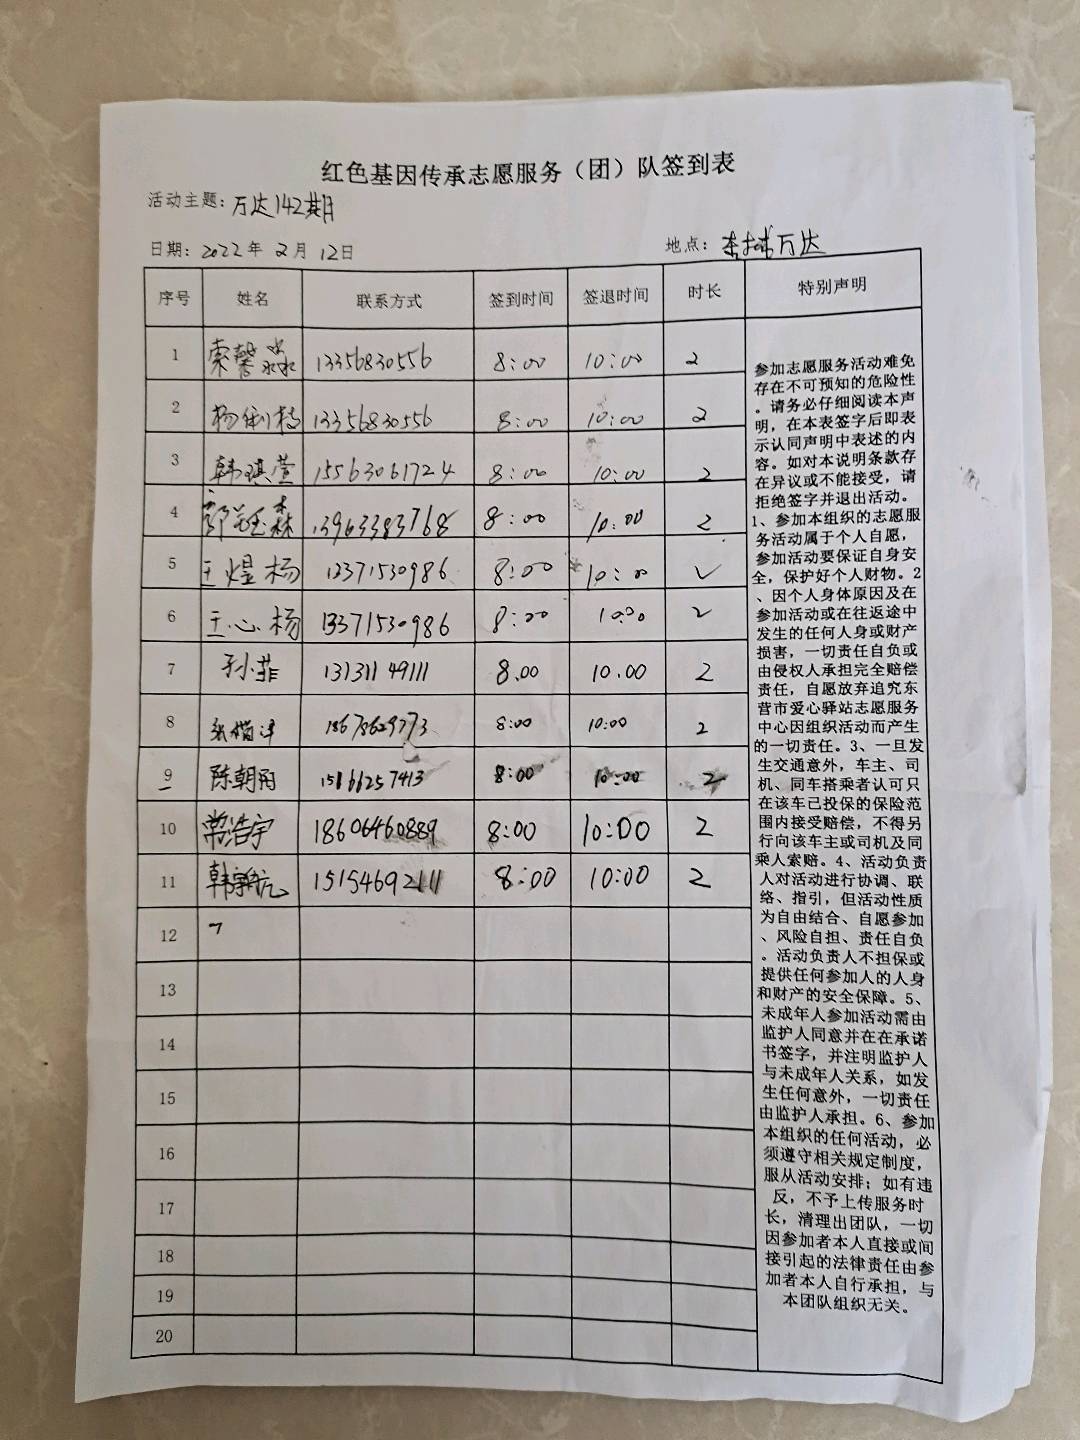 红色基因传承志愿服务（团）队签到表
活动主题：万达142期
日期：2022年2月12日 地点：万达
序号 姓名 联系方式 签到时间 签退时间 时长 特别声明
1 索馨淼 13356830556 8:00 10:00 2
2 杨俐 13356830556 8:00 10:00 2
3 韩琪萱 15563061724 8:00 10:00 2
4 郭钰森 13963383768 8:00 10:00 2
5 王煜杨 12371530986 8:00 10:00
6 王心杨 13371530986 8:00 10:00 2
7 孙菲 13131149111 8.00 10.00 2
8 张楷沣 18678629773 8:00 10:00 2
9 陈朝阳 15166257413 8:00 10:00 2
10 常浩宇 18606460889 8:00 10:00 2
11 韩 航 15154692111 8:00 10:00 2
12
13
14
15
16
17
18
19
20
参加志愿服务活动难免
存在不可预知的危险性
。请务必仔细阅读本声
明，在本表签字后即表
示认同声明中表述的内
容。如对本说明条款存
在异议或不能接受，请
拒绝签字并退出活动。
1、参加本组织的志愿服
务活动属于个人自愿，
参加活动要保证自身安
全，保护好个人财物。2
、因个人身体原因及在
参加活动或在往返途中
发生的任何人身或财产
损害，一切责任自负或
由侵权人承担完全赔偿
责任，自愿放弃追究东
营市爱心驿站志愿服务
中心因组织活动而产生
的一切责任。3、一旦发
生交通意外，车主、司
机、同车搭乘者认可只
在该车已投保的保险范
围内接受赔偿，不得另
行向该车主或司机及同
乘人索赔。4、活动负责
人对活动进行协调、联
络、指引，但活动性质
为自由结合、自愿参加
、风险自担、责任自负
。活动负责人不担保或
提供任何参加人的人身
和财产的安全保障。5、
未成年人参加活动需由
监护人同意并在在承诺
书签字，并注明监护人
与未成年人关系，如发
生任何意外，一切责任
由监护人承担。6、参加
本组织的任何活动，必
须遵守相关规定制度，
服从活动安排；如有违
反，不予上传服务时
长，清理出团队，一切
因参加者本人直接或间
接引起的法律责任由参
加者本人自行承担，与
本团队组织无关。